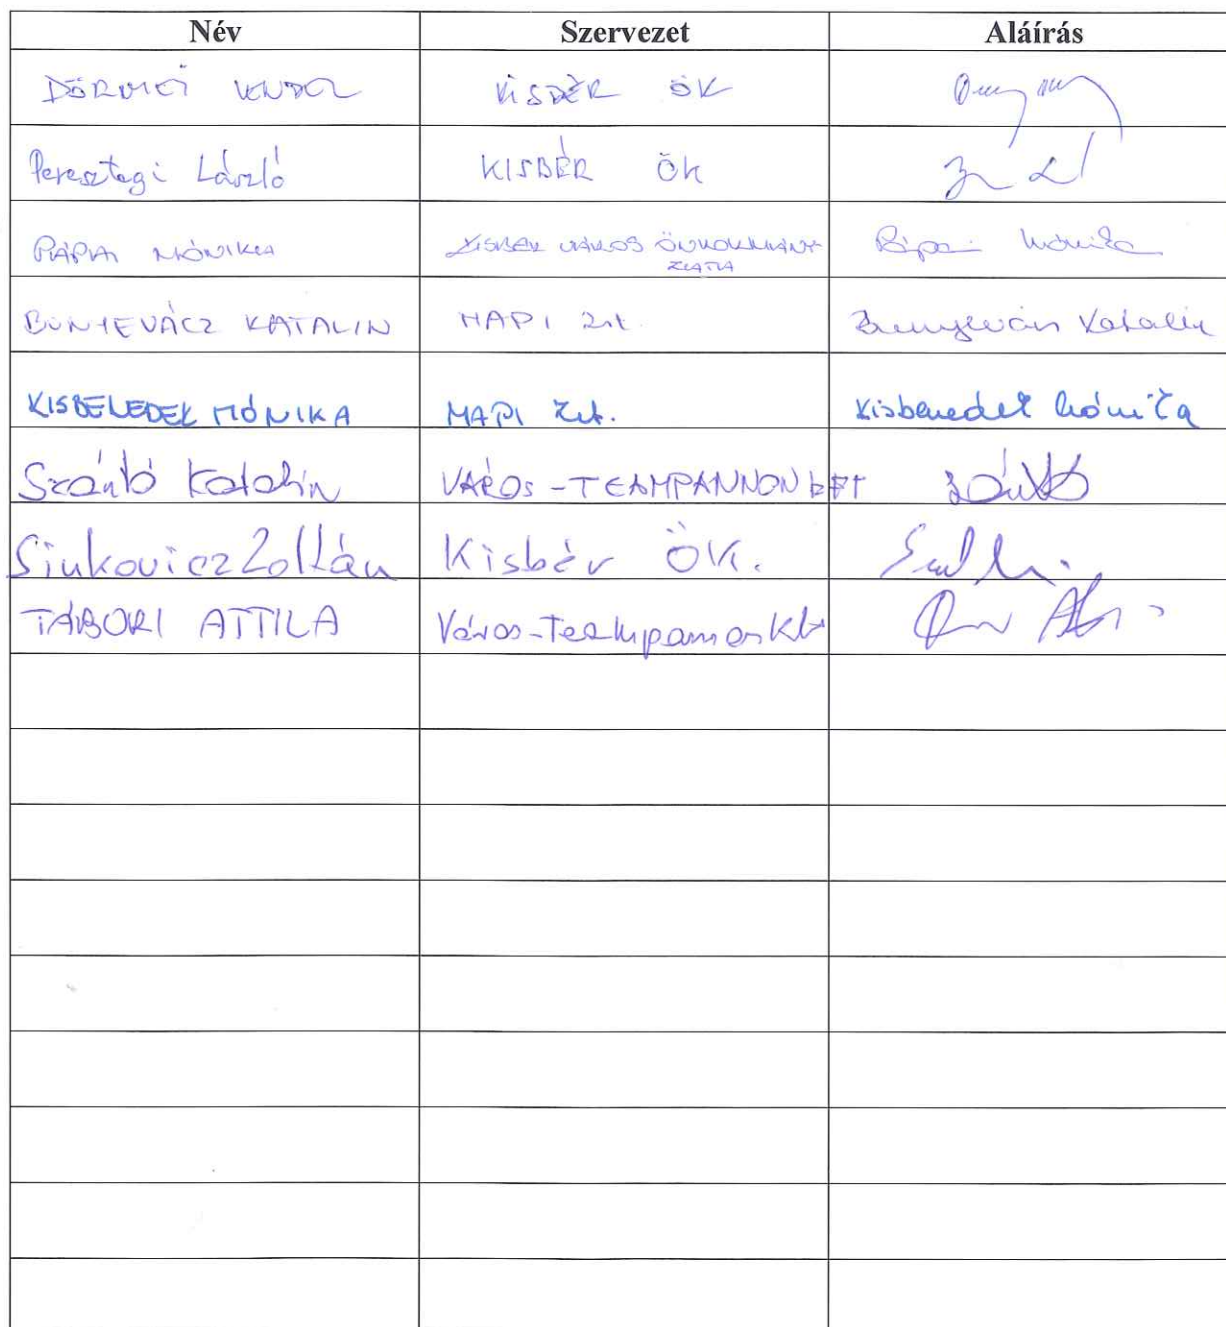 Név Szervezet Aláírás
KISBÉR ÖK
Peresztegi László KISBÉR ÖK
PÁPAI MÓNIKA KISBÉR VÁROS ÖNKORMÁNY- Pápai Mónika
ZATA
BUNYEVÁCZ KATALIN MAPI Zrt. Bunyevácz Katalin
KISBENEDEK MÓNIKA MAPI Zrt. Kisbenedek Mónika
Szántó Katalin VÁROS-TEAMPANNON KFT Szántó
Sinkovicz Zoltán Kisbér ÖK.
TÁBORI ATTILA Város-Teampannon Kft